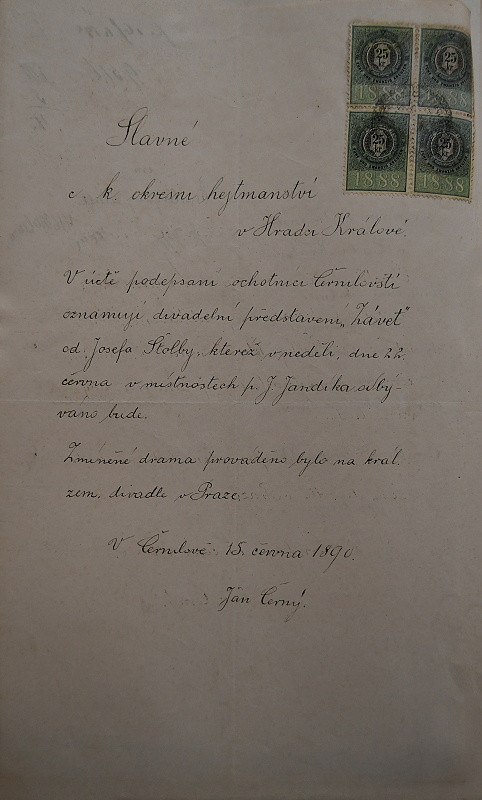 25
25
1888
1888
25
25
1888
1888
Slavné
c. k. okresní hejtmanství
v Hradci Králové.
V úctě podepsaní ochotníci Černilovští
oznamují divadelní představení „Závěť"
od Josefa Štolby, kteréž v neděli, dne 22.
června v místnostech p. J. Jandíka odbý-
váno bude.
Zmíněné drama prováděno bylo na král.
zem. divadle v Praze.
V Černilově 15. června 1890.
Jan Černý.